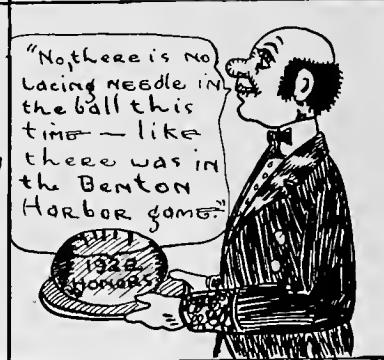 "No, there is no
lacing needle in
the ball this
time — like
there was in
the Benton
Harbor game"
1928
HONORS